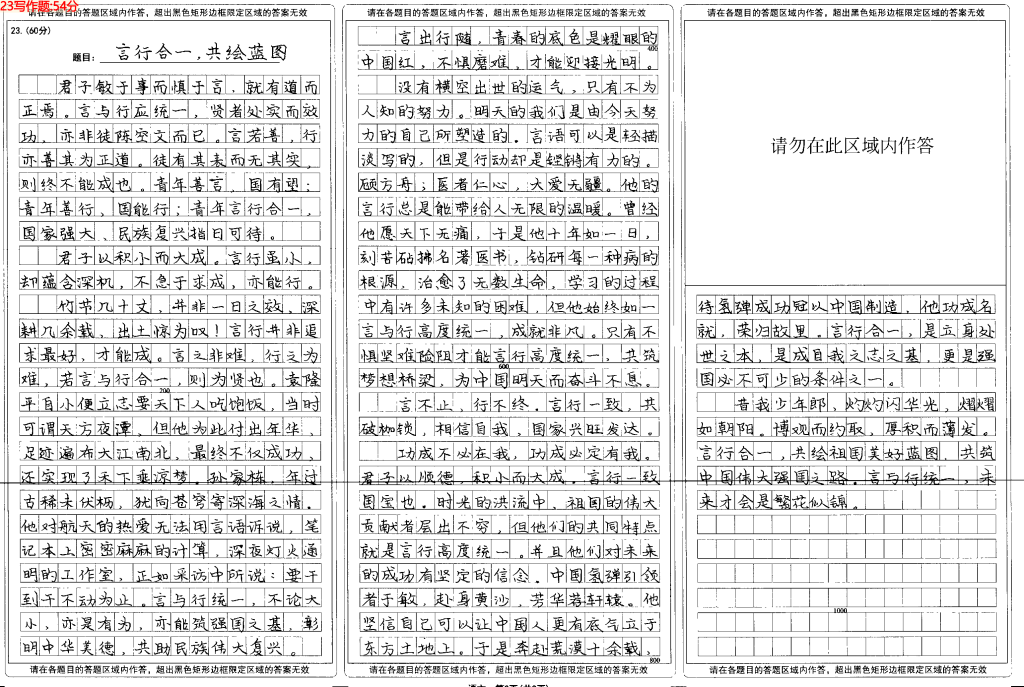 23写作题:54分
请在各题目的答题区域内作答，超出黑色矩形边框限定区域的答案无效
23.(60分)
题目：言行合一,共绘蓝图
君子敏于事而慎于言，就有道而
正焉。言与行应统一，贤者处实而效
功，亦非徒陈空文而已。言若善，行
亦善其为正道。徒有其表而无其实，
则终不能成也。青年善言，国有望；
青年善行，国能行；青年言行合一，
国家强大、民族复兴指日可待。
君子以积小而大成。言行虽小，
却蕴含深机，不急于求成，亦能行。
竹节几十丈，并非一日之效、深
耕几余载，出土惊为叹！言行并非追
求最好，才能成。言之非难，行之为
难，若言与行合一，则为贤也。袁隆
200
平自小便立志要天下人吃饱饭，当时
可谓天方夜谭，但他为此付出年华、
足迹遍布大江南北，最终不仅成功、
还实现了禾下乘凉梦。孙家栋，年过
古稀未伏枥，犹向苍穹寄深海之情。
他对航天的热爱无法用言语诉说，笔
记本上密密麻麻的计算，深夜灯火通
明的工作室，正如采访中所说：要干
到干不动为止。言与行统一，不论大
小，亦是有为，亦能筑强国之基，彰
明中华美德，共助民族伟大复兴。
请在各题目的答题区域内作答，超出黑色矩形边框限定区域的答案无效
请在各题目的答题区域内作答，超出黑色矩形边框限定区域的答案无效
言出行随，青春的底色是耀眼的
400
中国红，不惧磨难，才能迎接光明。
没有横空出世的运气，只有不为
人知的努力。明天的我们是由今天努
力的自己所塑造的。言语可以是轻描
淡写的，但是行动却是铿锵有力的。
顾方舟；医者仁心，大爱无疆。他的
言行总是能带给人无限的温暖。曾经
他愿天下无痛，于是他十年如一日，
刻苦钻拂名著医书，钻研每一种病的
根源，治愈了无数生命，学习的过程
中有许多未知的困难，但他始终如一
言与行高度统一，成就非凡。只有不
惧坚难险阻才能言行高度统一，共筑
600
梦想桥梁，为中国明天而奋斗不息。
言不止，行不终。言行一致，共
破枷锁，相信自我，国家兴旺发达。
功成不必在我，功成必定有我。
君子以顺德，积小而大成。言行一致
国宝也。时光的洪流中，祖国的伟大
贡献者层出不穷，但他们的共同特点
就是言行高度统一。并且他们对未来
的成功有坚定的信念。中国氢弹引领
者于敏，赴身黄沙，芳华若轩辕。他
坚信自己可以让中国人更有底气立于
东方土地上。于是奔赴荒漠十余载，
800
请在各题目的答题区域内作答，超出黑色矩形边框限定区域的答案无效
请在各题目的答题区域内作答，超出黑色矩形边框限定区域的答案无效
请勿在此区域内作答
待氢弹成功冠以中国制造，他功成名
就，荣归故里。言行合一，是立身处
世之本，是成自我之志之基，更是强
国必不可少的条件之一。
昔我少年郎、灼灼闪华光，熠熠
如朝阳。博观而约取，厚积而薄发。
言行合一，共绘祖国美好蓝图，共筑
中国伟大强国之路。言与行统一，未
来才会是繁花似锦。
1000
请在各题目的答题区域内作答，超出黑色矩形边框限定区域的答案无效